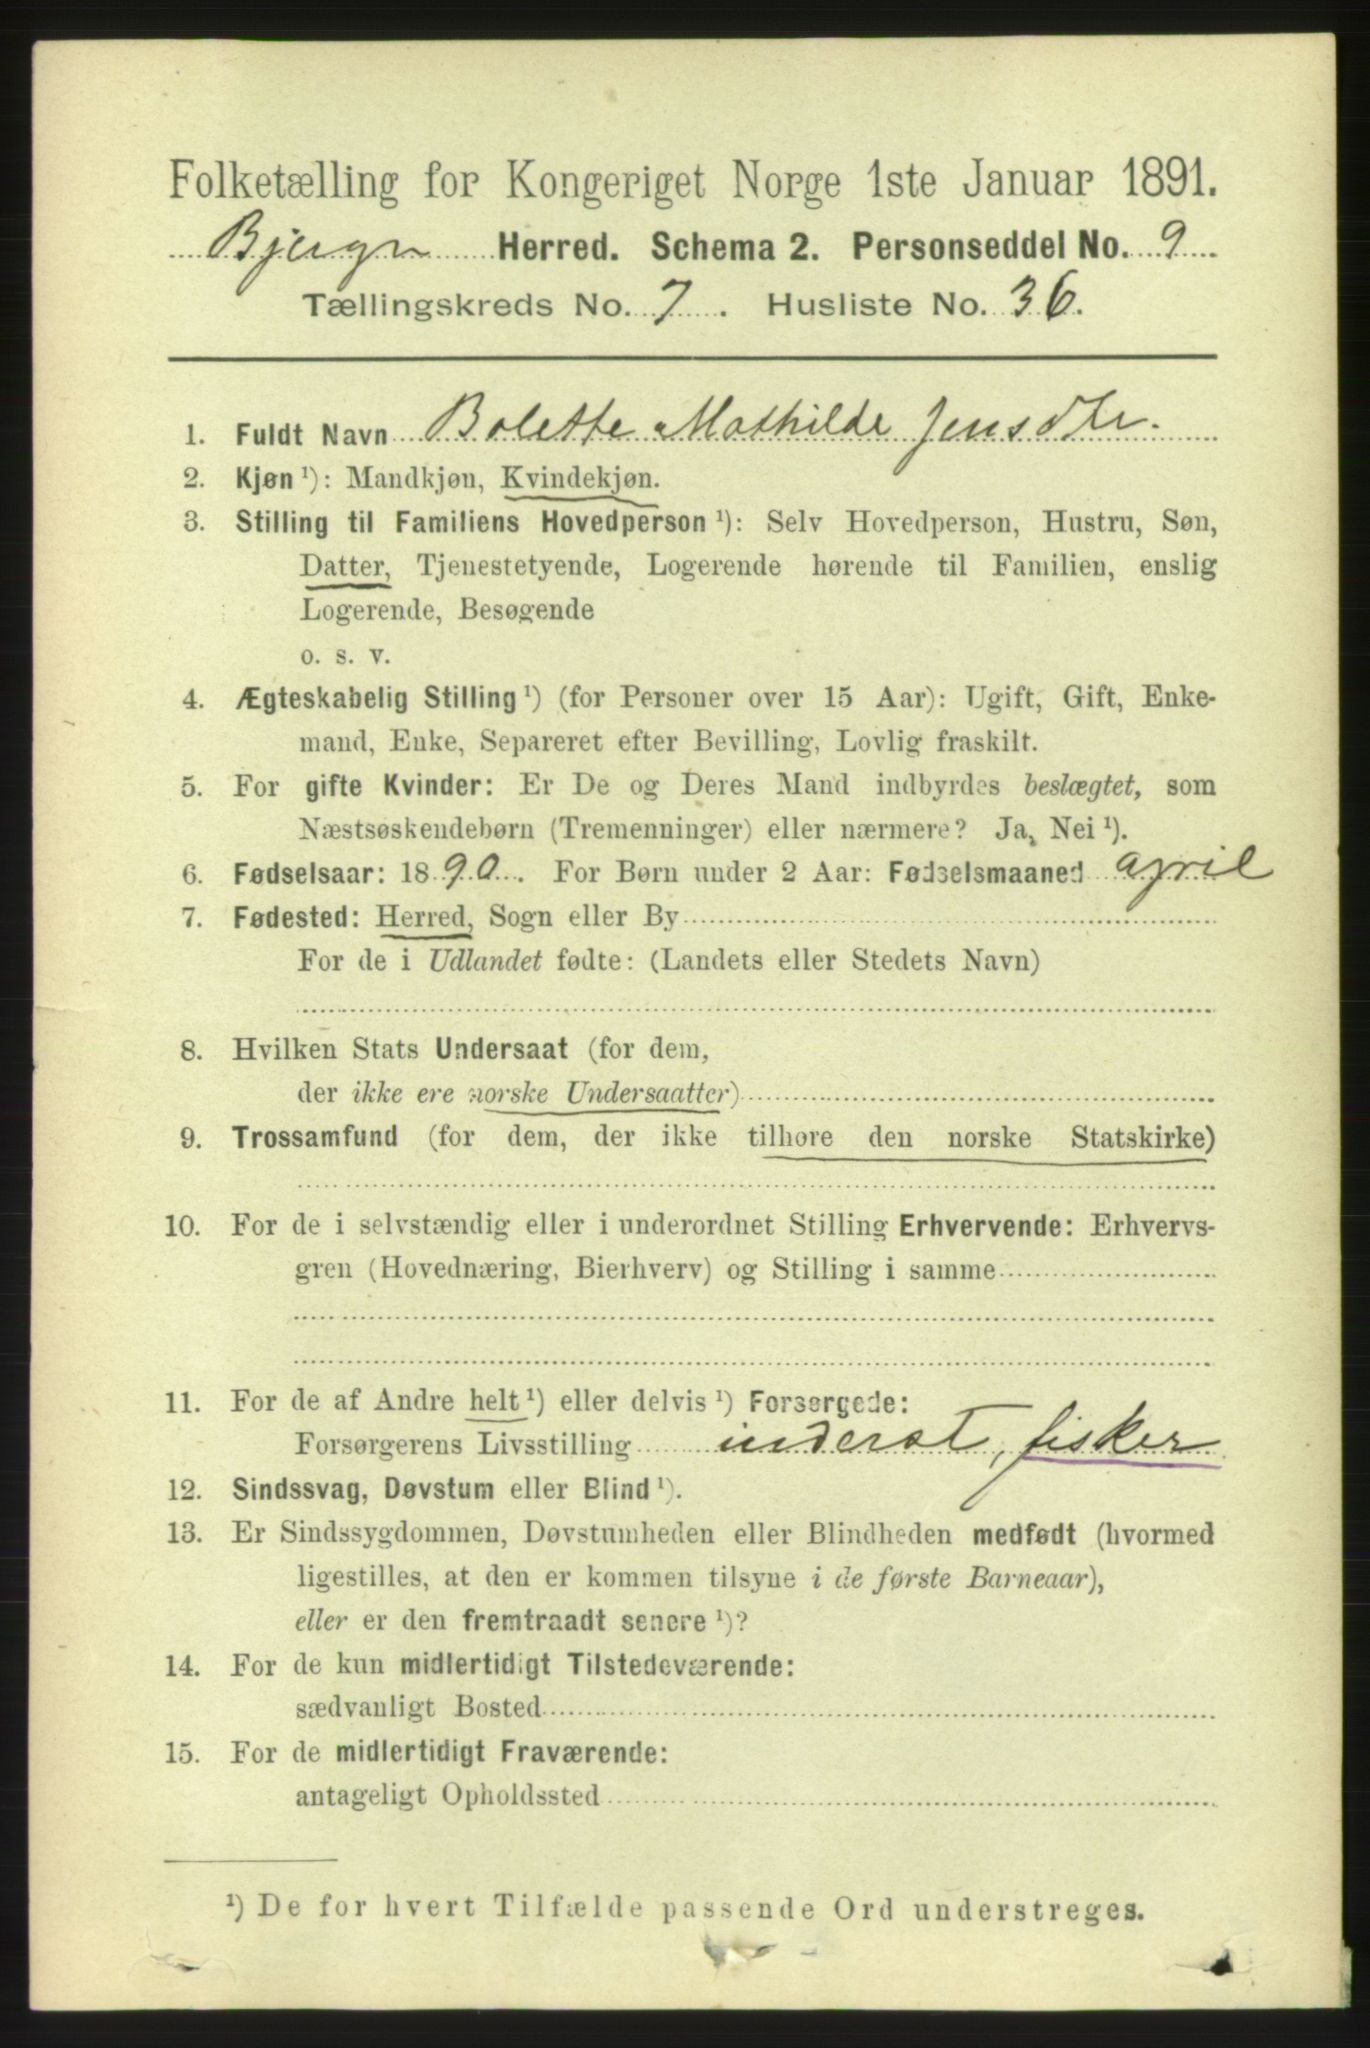 Folketælling for Kongeriget Norge 1ste Januar 1891.
Bjugn Herred. Schema 2. Personseddel No. 9
Tællingskreds No. 7. Husliste No. 36.
1. Fuldt Navn Bolette Mathilde Jensdtr.
2. Kjøn ¹): Mandkjøn, Kvindekjøn.
3. Stilling til Familiens Hovedperson ¹): Selv Hovedperson, Hustru, Søn,
Datter, Tjenestetyende, Logerende hørende til Familien, enslig
Logerende, Besøgende
o. s. v.
4. Ægteskabelig Stilling ¹) (for Personer over 15 Aar): Ugift, Gift, Enke-
mand, Enke, Separeret efter Bevilling, Lovlig fraskilt.
5. For gifte Kvinder: Er De og Deres Mand indbyrdes beslægtet, som
Næstsøskendebørn (Tremenninger) eller nærmere? Ja, Nei ¹).
6. Fødselsaar: 1890. For Børn under 2 Aar: Fødselsmaaned april
7. Fødested: Herred, Sogn eller By
For de i Udlandet fødte: (Landets eller Stedets Navn)
8. Hvilken Stats Undersaat (for dem,
der ikke ere norske Undersaatter)
9. Trossamfund (for dem, der ikke tilhøre den norske Statskirke)
10. For de i selvstændig eller i underordnet Stilling Erhvervende: Erhvervs-
gren (Hovednæring, Bierhverv) og Stilling i samme
11. For de af Andre helt ¹) eller delvis ¹) Forsørgede:
Forsørgerens Livsstilling inderst, fisker
12. Sindssvag, Døvstum eller Blind ¹).
13. Er Sindssygdommen, Døvstumheden eller Blindheden medfødt (hvormed
ligestilles, at den er kommen tilsyne i de første Barneaar),
eller er den fremtraadt senere ¹)?
14. For de kun midlertidigt Tilstedeværende:
sædvanligt Bosted
15. For de midlertidigt Fraværende:
antageligt Opholdssted
¹) De for hvert Tilfælde passende Ord understreges.